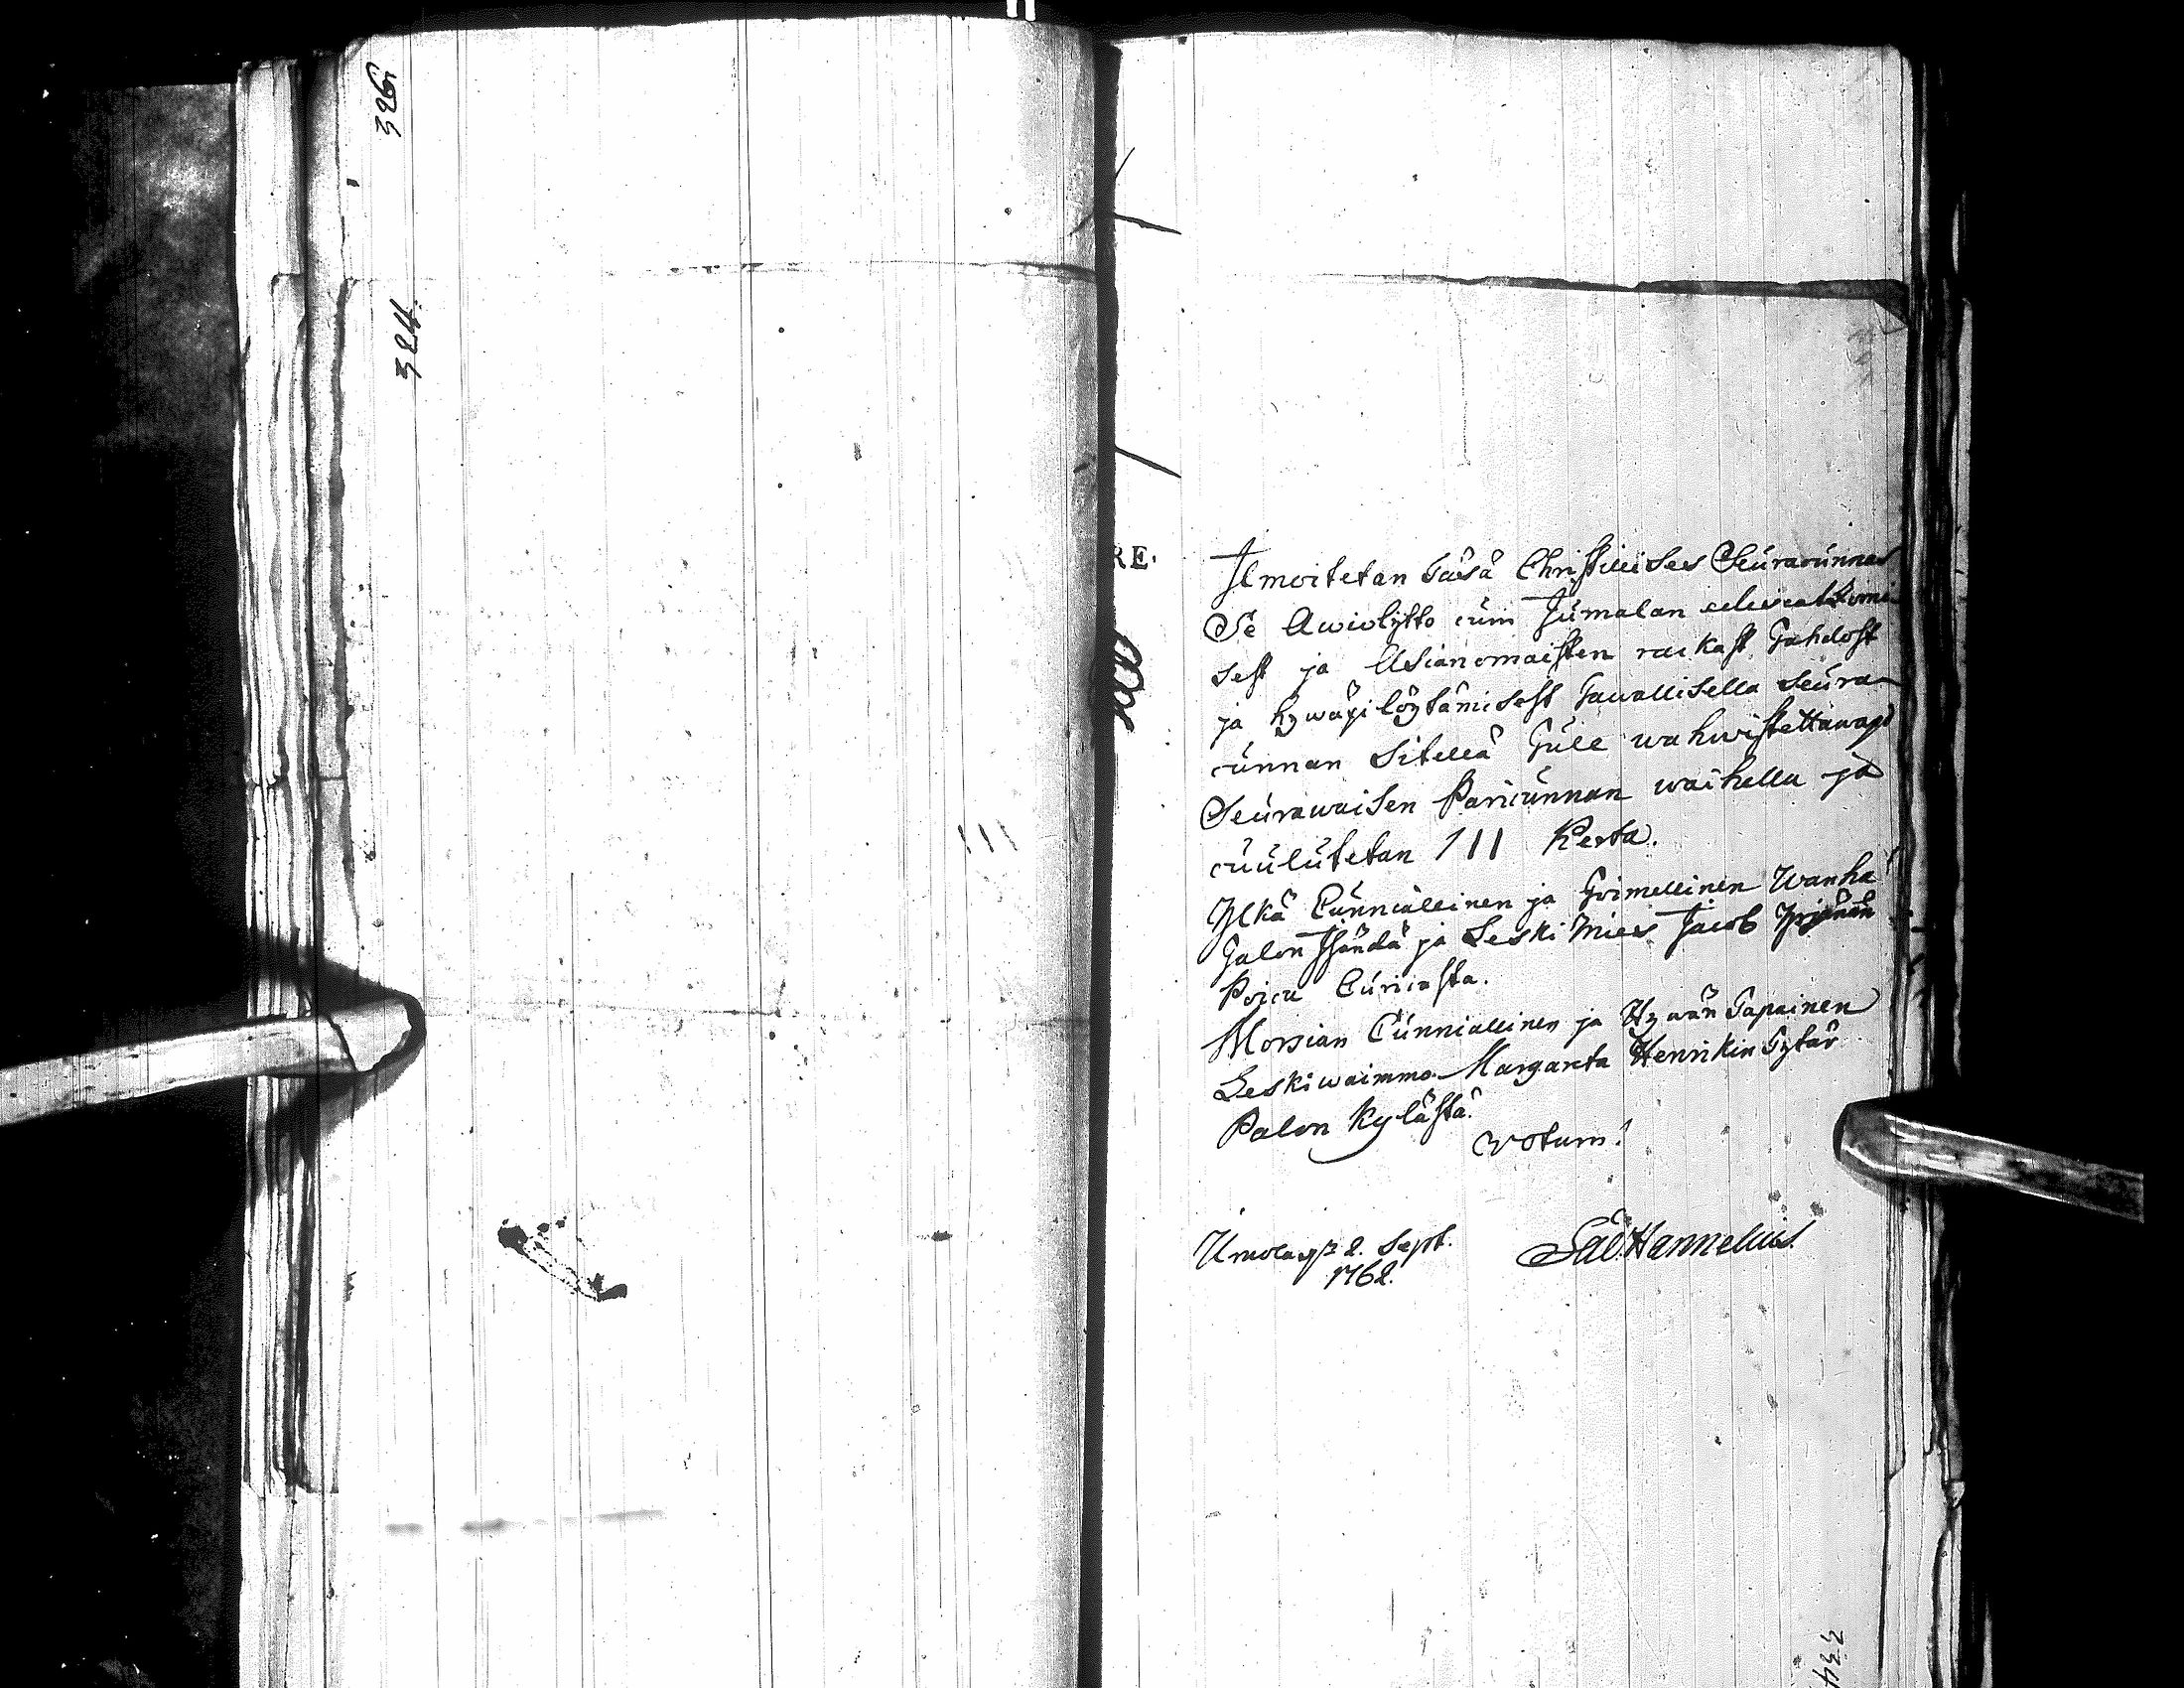 326.
324.
RE.
Ilmoitetan täsä Christillises Seuracunnas
Se Awiolytto cuin Jumalan edescatzomi
sest ja Asianomaisten rackast Tahdost
ja hywäxi löytämisest tawallisella seura-
cunnan Sitellä Tule wahwistettawaxi
Seurawaisen Paricunnan waihella ja
cuulutetan III Kerta.
Ylkä Cunniallinen ja Toimellinen Wanha
Talon Isändä ja Leski Mies Jacob Yrjänän
Poica Curicasta.
Morsian Cunniallinen ja Hywän Tapainen
Leskiwaimmo Margareta Henrikin Tytär
Palon Kylästä.
Votum!
Urwola 2. Sept.
1762.
Hannelius.
334